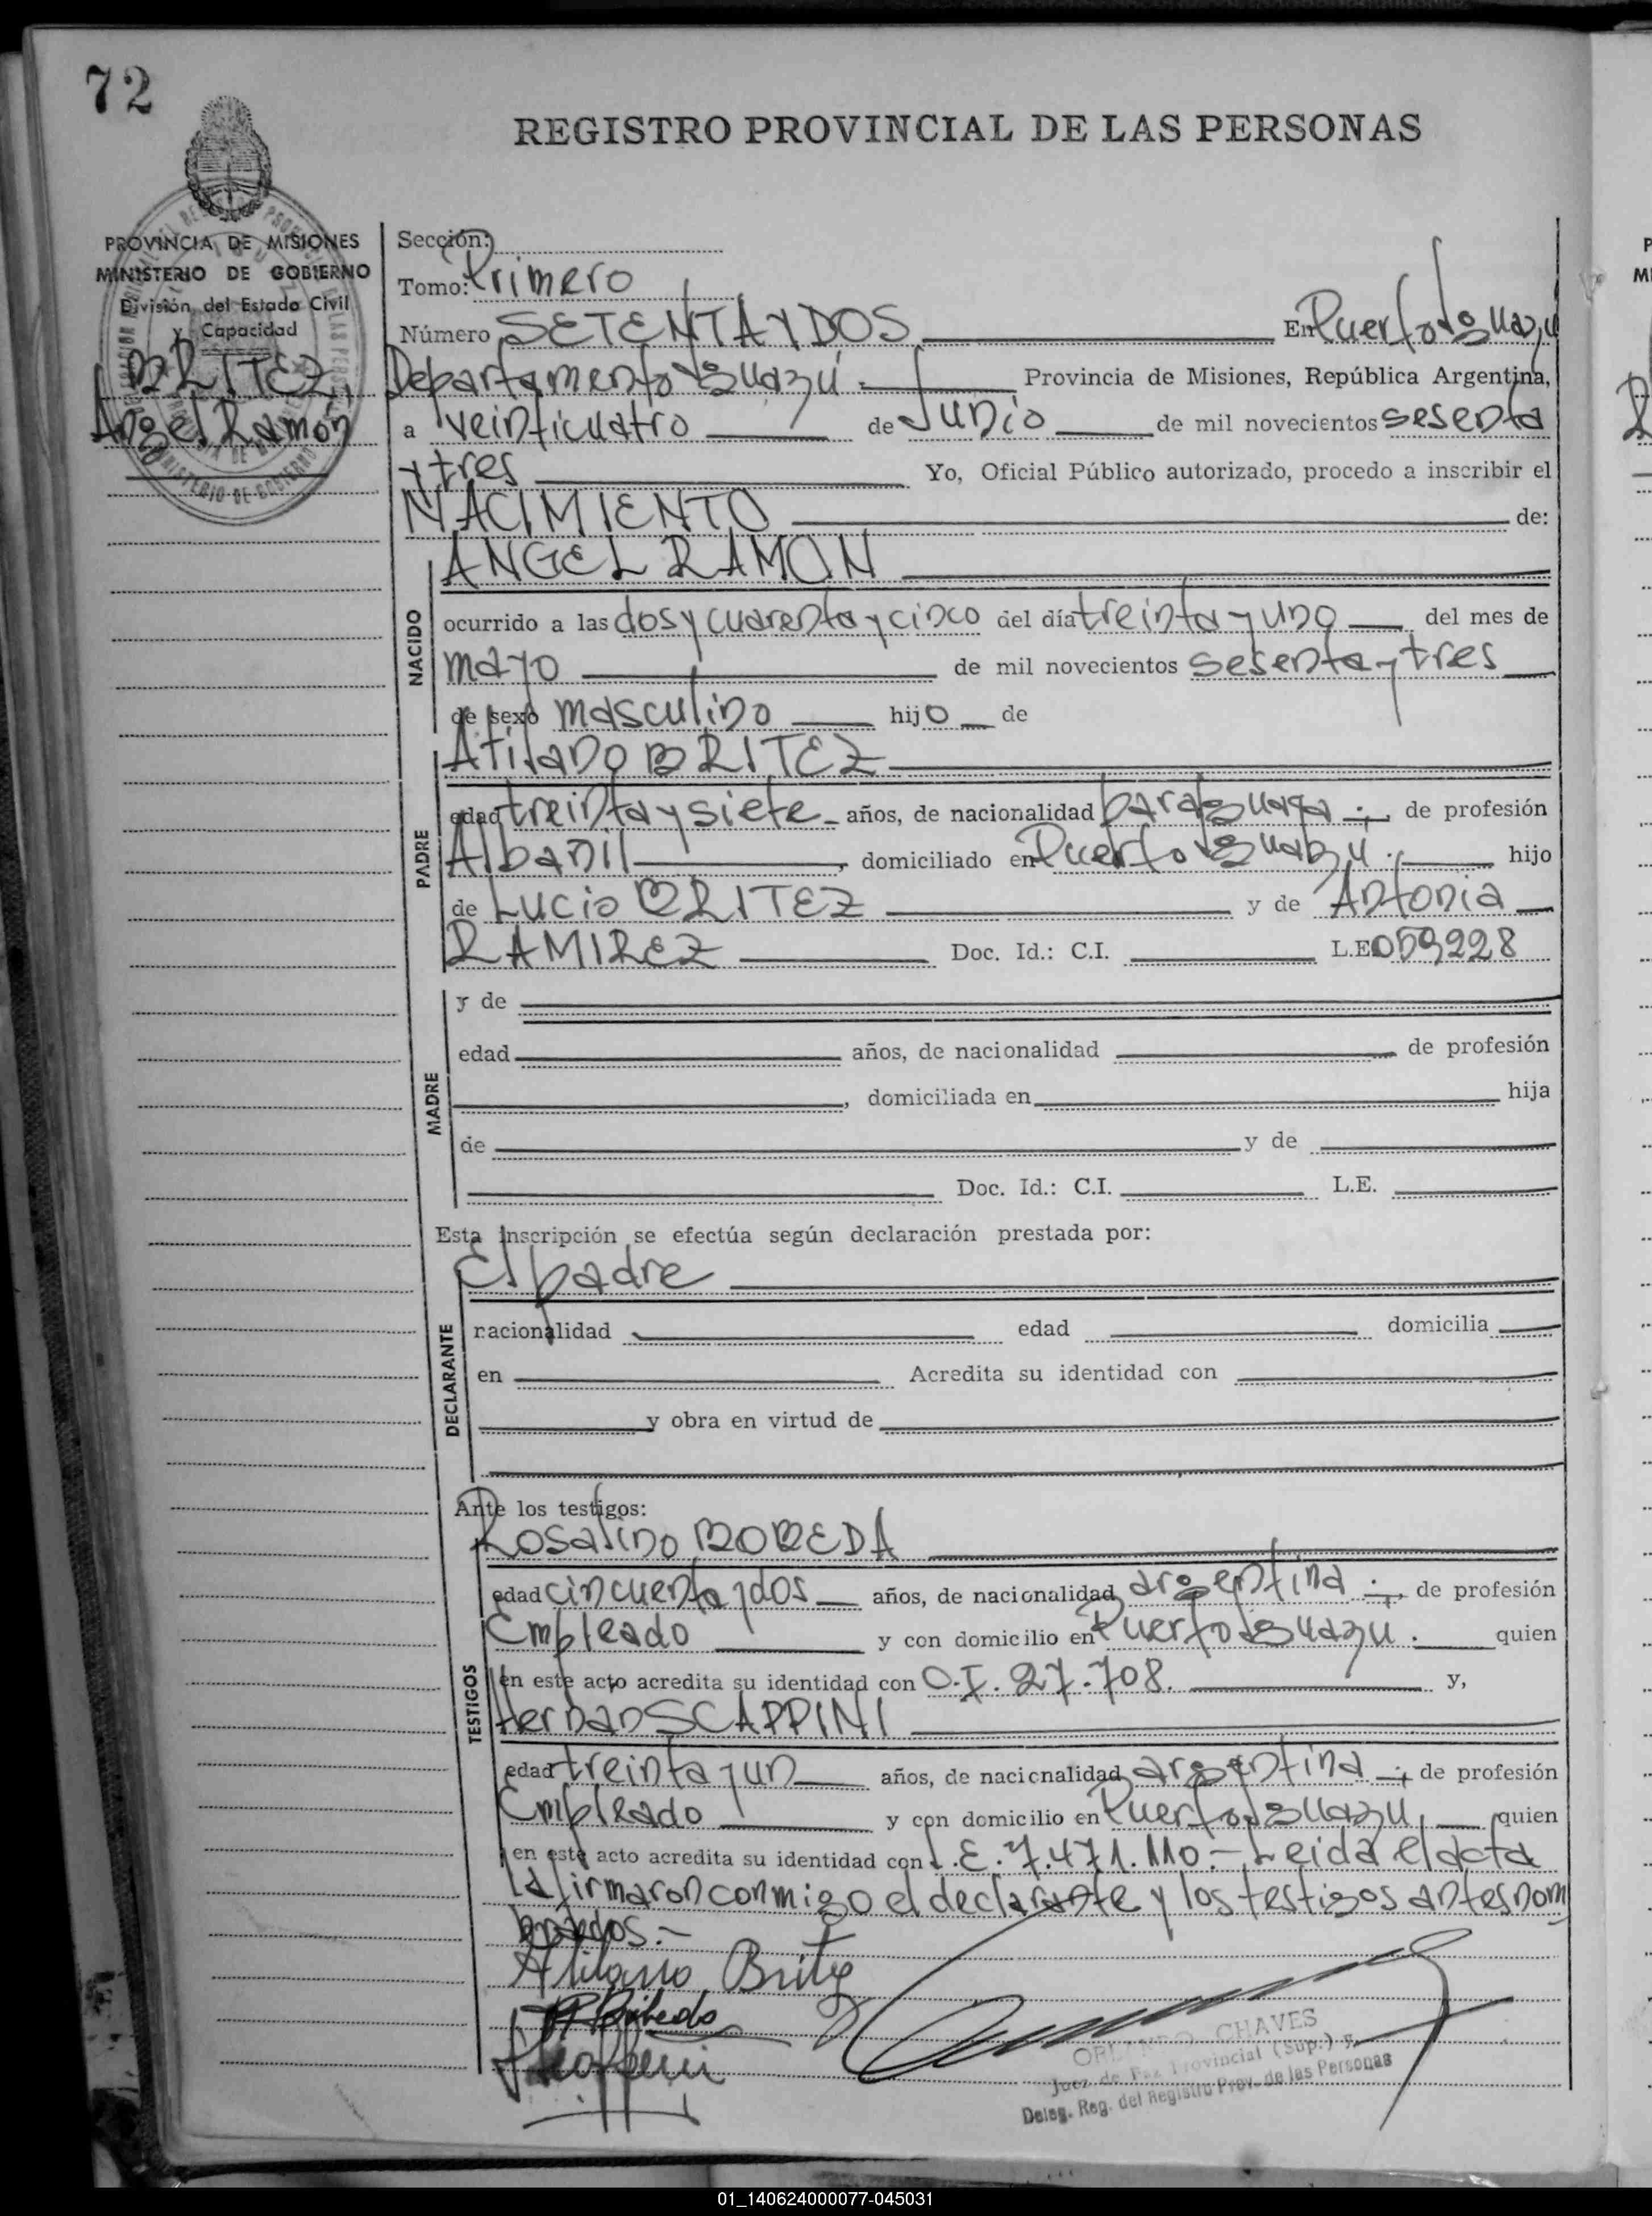 72
REGISTRO PROVINCIAL DE LAS PERSONAS
PROVINCIA DE MISIONES
MINISTERIO DE GOBIERNO
División del Estado Civil
y Capacidad
BRITEZ,
Angel Ramón
Sección:
Tomo: Primero
Número SETENTA Y DOS En Puerto Iguazú
Departamento Iguazú.- Provincia de Misiones, República Argentina,
a veinticuatro de Junio de mil novecientos sesenta
y tres Yo, Oficial Público autorizado, procedo a inscribir el
NACIMIENTO de:
NACIDO
ANGEL RAMON
ocurrido a las dos y cuarenta y cinco del día treinta y uno del mes de
mayo de mil novecientos sesenta y tres
de sexo masculino hijo de
PADRE
Atilano BRITEZ
edad treinta y siete años, de nacionalidad paraguaya.-, de profesión
Albanil, domiciliado en Puerto Iguazú.- hijo
de Lucio BRITEZ y de Antonia
RAMIREZ Doc. Id.: C.I. L.E. 059228
MADRE
y de
edad años, de nacionalidad de profesión
, domiciliada en hija
de y de
Doc. Id.: C.I. L.E.
Esta inscripción se efectúa según declaración prestada por:
DECLARANTE
El padre
nacionalidad edad domicilia
en Acredita su identidad con
y obra en virtud de
Ante los testigos:
TESTIGOS
Rosalino BOBEDA
edad cincuenta y dos años, de nacionalidad argentina.-, de profesión
Empleado y con domicilio en Puerto Iguazú. quien
en este acto acredita su identidad con C.I. 27.708. y,
Hernan SCAPPINI
edad treinta y un años, de nacionalidad argentina.-, de profesión
Empleado y con domicilio en Puerto Iguazú, quien
en este acto acredita su identidad con L.E. 7.471.110.- Leida el acta
la firmaron conmigo el declarante y los testigos antes nom
brados.-
Atilano Britez
ORLANDO CHAVES
Juez de Paz Provincial (Sup.) y
Deleg. Reg. del Registro Prov. de las Personas
01_140624000077-045031